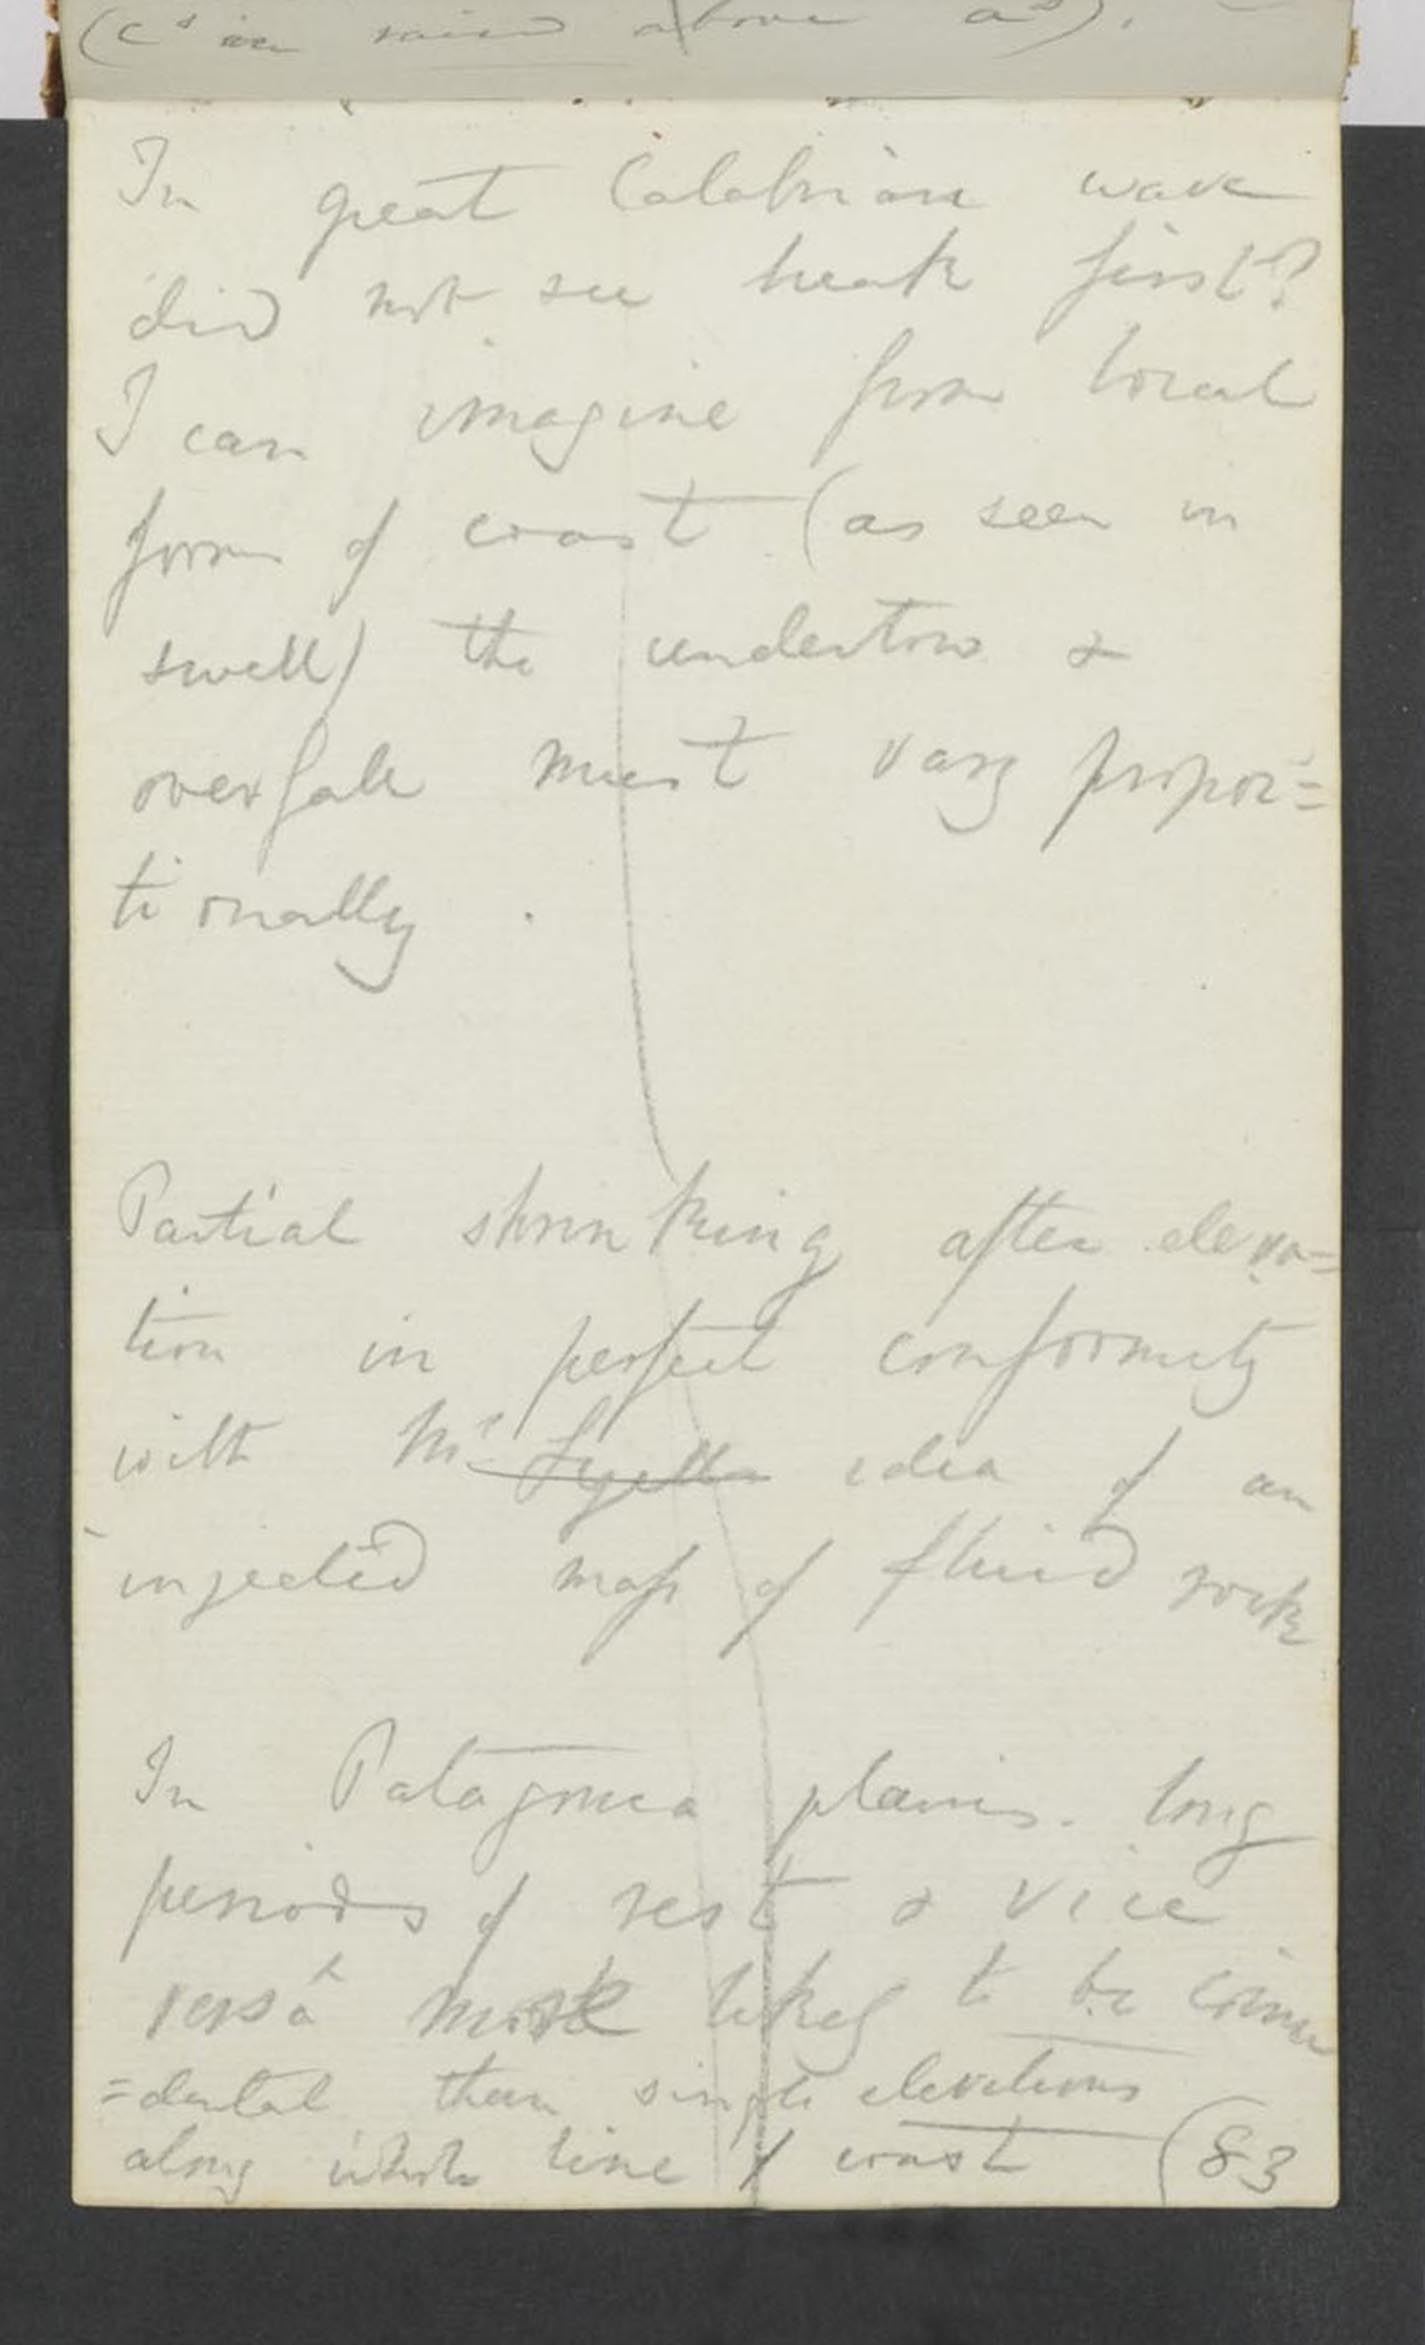 (C's in raised above a's).
In great Calabrian wave
did not sea break first?
I can imagine from local
form of coast (as seen in
swell) the undertow &
overfall must vary propor=
tionally.
Partial shrinking after eleva=
tion in perfect conformity
with Mr Lyells idea of an
injected mass of fluid rock
In Patagonia plains. long
periods of rest & vice
versâ more likely to be coinci
=dental than single elevations
along whole line of coast (83